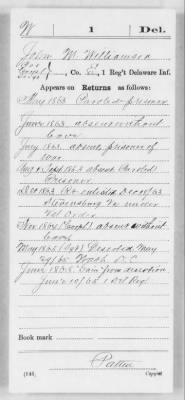 W | 1 | Del.
John M. Williamson
, Co. E, 1 Reg't Delaware Inf.
Appears on Returns as follows:
May 1863 Paroled prisoner
June 1863, absent without
leave
July 1863. absent prisoner of
war
Aug & Sept 1863 absent Paroled
Prisoner
Dec 1863 Re enlisted Dec 18/63
Stevensburg Va under
Order
Nov 1864 absent without
leave
May 1865 Deserted May
29/65 Wash D.C.
June 1865 from desertion
June
Book mark
(546)
Copyist